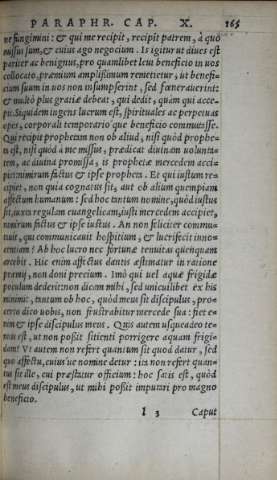 PARAPHR. CAP. X. 165
ne fungimini: & qui me recipit, recipit patrem, à quo
missus sum, & cuius ago negocium. Is igitur ut diues est
pariter ac benignus, pro quamlibet leui beneficio in uos
collocato, præmium amplissimum remetietur, ut benefi-
cium suum in uos non insumpserint, sed fœnerauerint:
& multò plus gratiæ debeat, qui dedit, quàm qui acce-
pit. Siquidem ingens lucrum est, spirituales ac perpetuas
opes, corporali temporarioq́ue beneficio commutasse.
Qui recipit prophetam non ob aliud, nisi quòd prophe-
ta est, nisi quòd à me missus, prædicat diuinam uolunta-
tem, ac diuina promissa, is prophetæ mercedem acci-
piet: nimirum factus & ipse propheta. Et qui iustum re-
cipiet, non quia cognatus sit, aut ob alium quempiam
affectum humanum: sed hoc tantum nomine, quòd iustus
sit, iuxta regulam euangelicam, iusti mercedem accipiet,
nimirum factus & ipse iustus. An non feliciter commu-
tat, qui communicauit hospitium, & lucrifecit inno-
centiam? Ab hoc lucro nec fortunæ tenuitas quenquam
arcebit. Hic enim affectus dantis æstimatur in ratione
præmij, non doni precium. Imò qui uel aquæ frigidæ
poculum dederit: non dicam mihi, sed unicuilibet ex his
minimis, tantum ob hoc, quòd meus sit discipulus, pro-
certo dico uobis, non frustrabitur mercede sua: fiet e-
nim & ipse discipulus meus. Quis autem usqueadeo te-
nuis est, ut non possit sitienti porrigere aquam frigi-
dam? Vt autem non refert quantum sit quod datur, sed
quo affectu, cuius ue nomine detur: ita non refert quan-
tus sit ille, cui præstatur officium: hoc satis est, quòd
est meus discipulus, ut mihi possit imputari pro magno
beneficio.
I 3 Caput